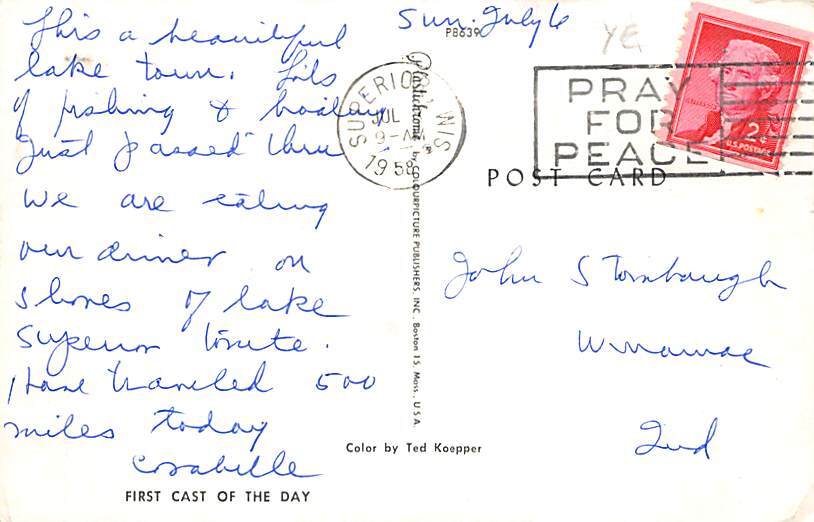 Sun. July 6
P8639
YE
This a beautiful
lake town. Lots
of fishing & boating
Just passed thru
we are eating
our dinner on
shores of lake
Superior tonite.
Have traveled 500
miles today
Corabelle
FIRST CAST OF THE DAY
SUPERIOR WIS
JUL
9-AM
1958
Plastichrome by COLOURPICTURE PUBLISHERS, INC. Boston 15, Mass., U.S.A.
PRAY
FOR
PEACE
2¢
U.S. POSTAGE
POST CARD
John Stombaugh
Winamac
Ind
Color by Ted Koepper